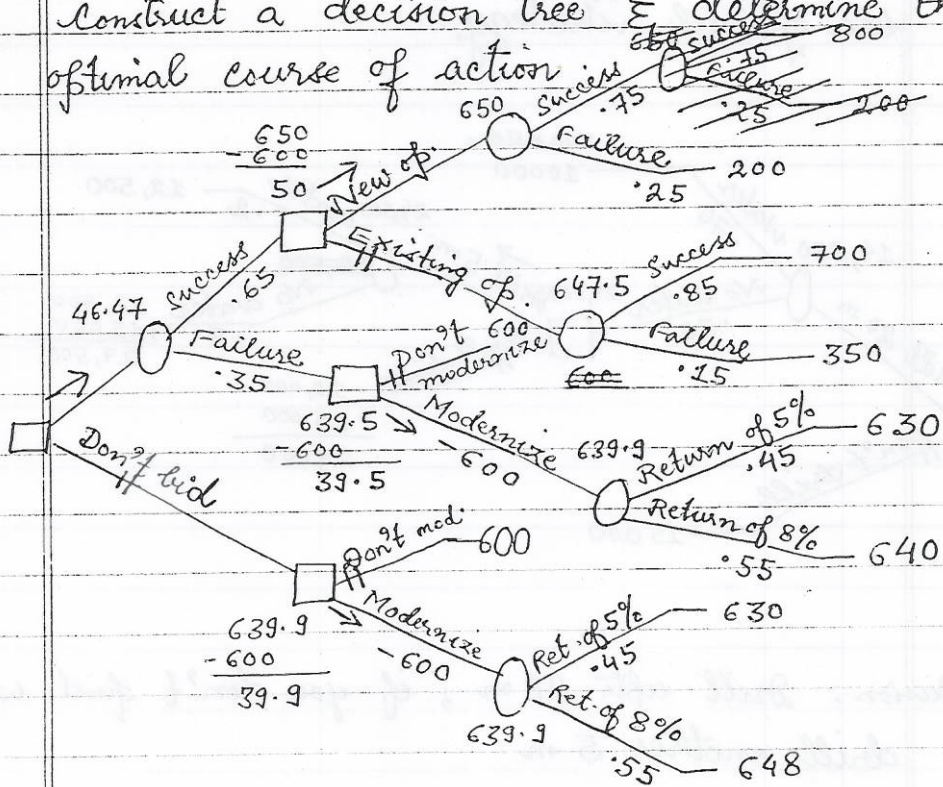 construct a decision tree & determine
optimal course of action.
650
Success
.75
800
Failure
.25
200
650
Success
.75
Failure
.25
200
650
-600
50
New op.
Existing op.
46.47
Success
.65
Failure
.35
647.5
Success
.85
700
Failure
.15
350
600
Don't modernize
600
639.5
-600
39.5
Modernize
-600
639.9
Return of 5%
.45
630
Return of 8%
.55
640
Don't bid
Don't mod.
600
639.9
-600
39.9
Modernize
-600
639.9
Ret. of 5%
.45
630
Ret. of 8%
.55
648